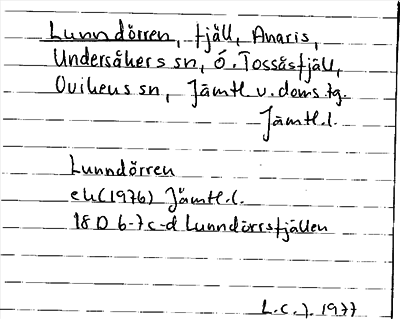 Lunndörren, fjäll, Anaris,
Undersåkers sn, Ö. Tossåsfjäll,
Ovikens sn, Jämtl v. doms tg.
Jämtl.l.
Lunndörren
ek (1976) Jämtl.l.
18 D 6-7 c-d Lunndörrsfjällen
L.C.J. 1977